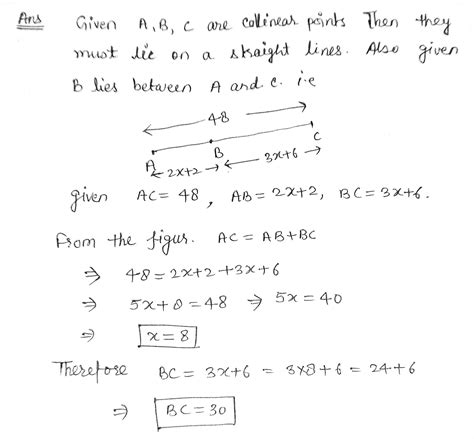 Ans Given A, B, C are collinear points Then they
must lie on a straight lines. Also given
B lies between A and C. i.e
48
A B C
2x+2 3x+6
given AC = 48, AB = 2x+2, BC = 3x+6.
From the figur. AC = AB+BC
⇒ 48 = 2x+2+3x+6
⇒ 5x+8 = 48 ⇒ 5x = 40
⇒ x = 8
Therefore BC = 3x+6 = 3×8+6 = 24+6
⇒ BC = 30